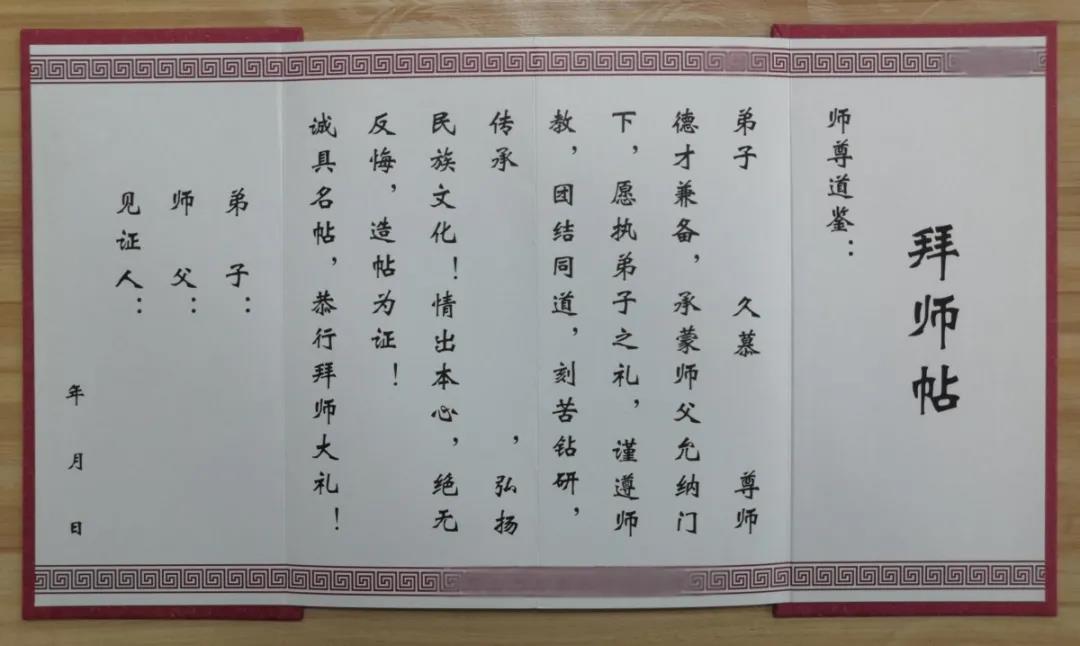 拜师帖
师尊道鉴：
弟子 久慕 尊师
德才兼备，承蒙师父允纳门
下，愿执弟子之礼，谨遵师
教，团结同道，刻苦钻研，
传承 ，弘扬
民族文化！情出本心，绝无
反悔，造帖为证！
诚具名帖，恭行拜师大礼！
弟 子：
师 父：
见证人：
年 月 日